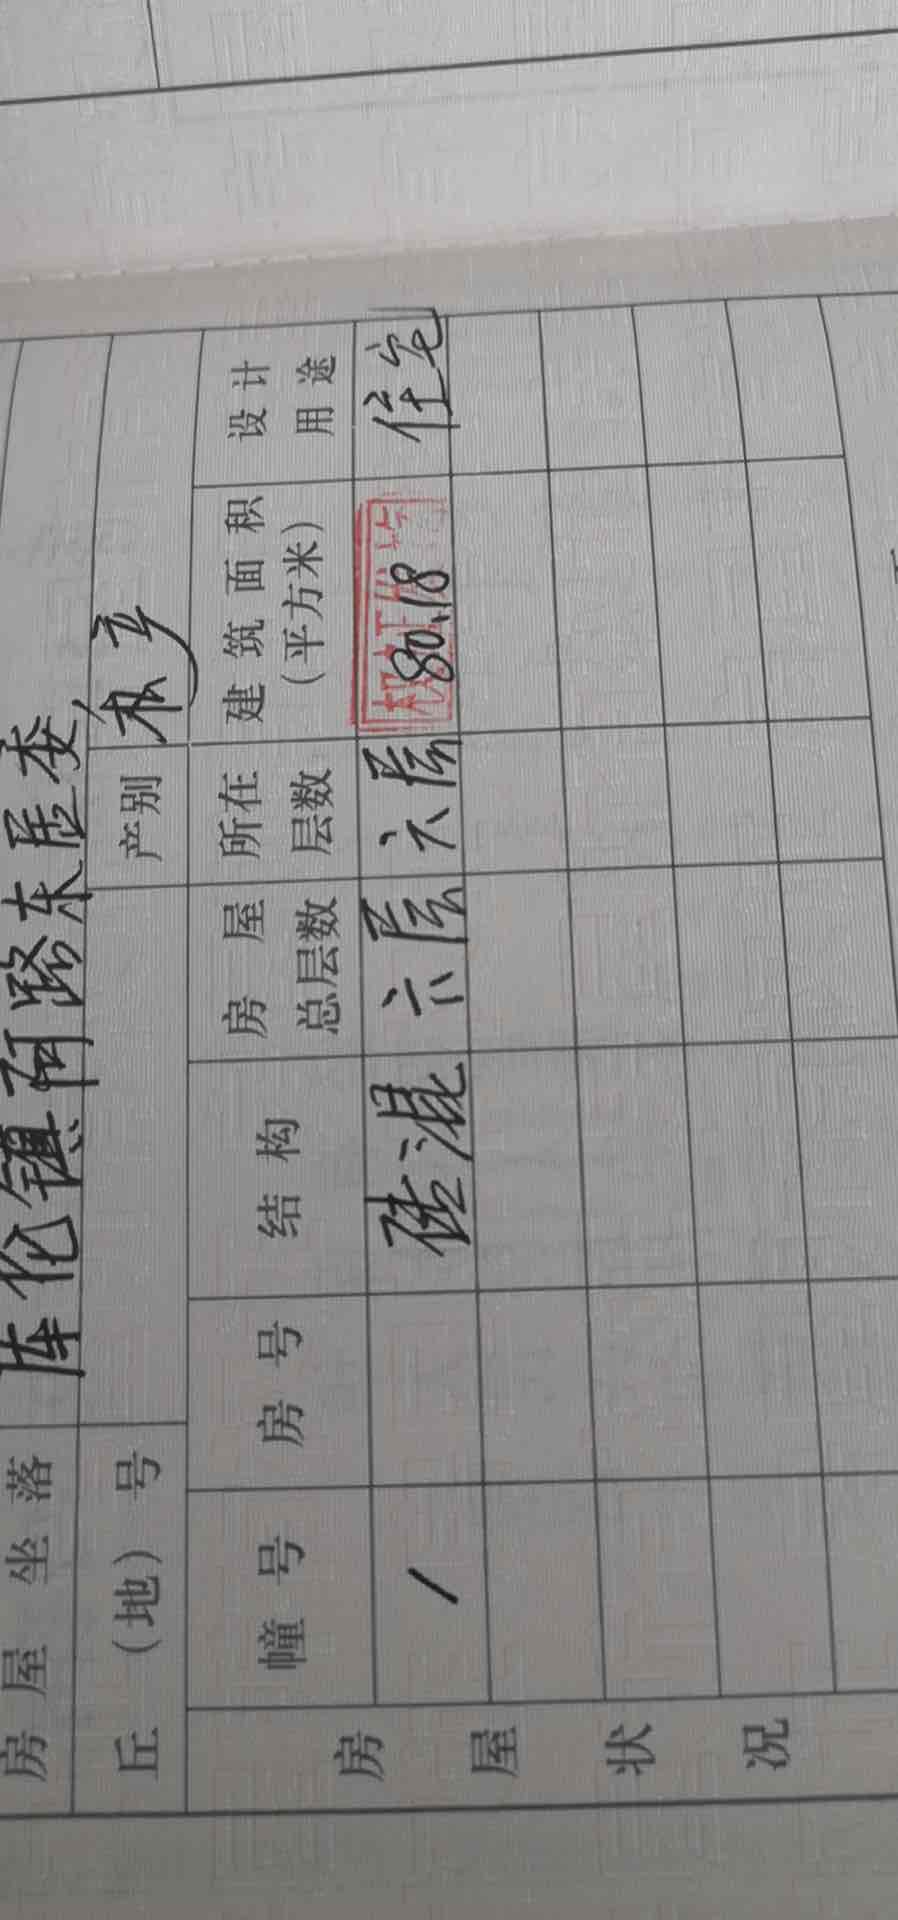 房屋坐落 库伦镇阿路东居委
丘(地)号 产别 私产
幢号 房号 结构 房屋总层数 所在层数 建筑面积(平方米) 设计用途
/ 砖混 六层 六层 80.18 住宅
房屋状况